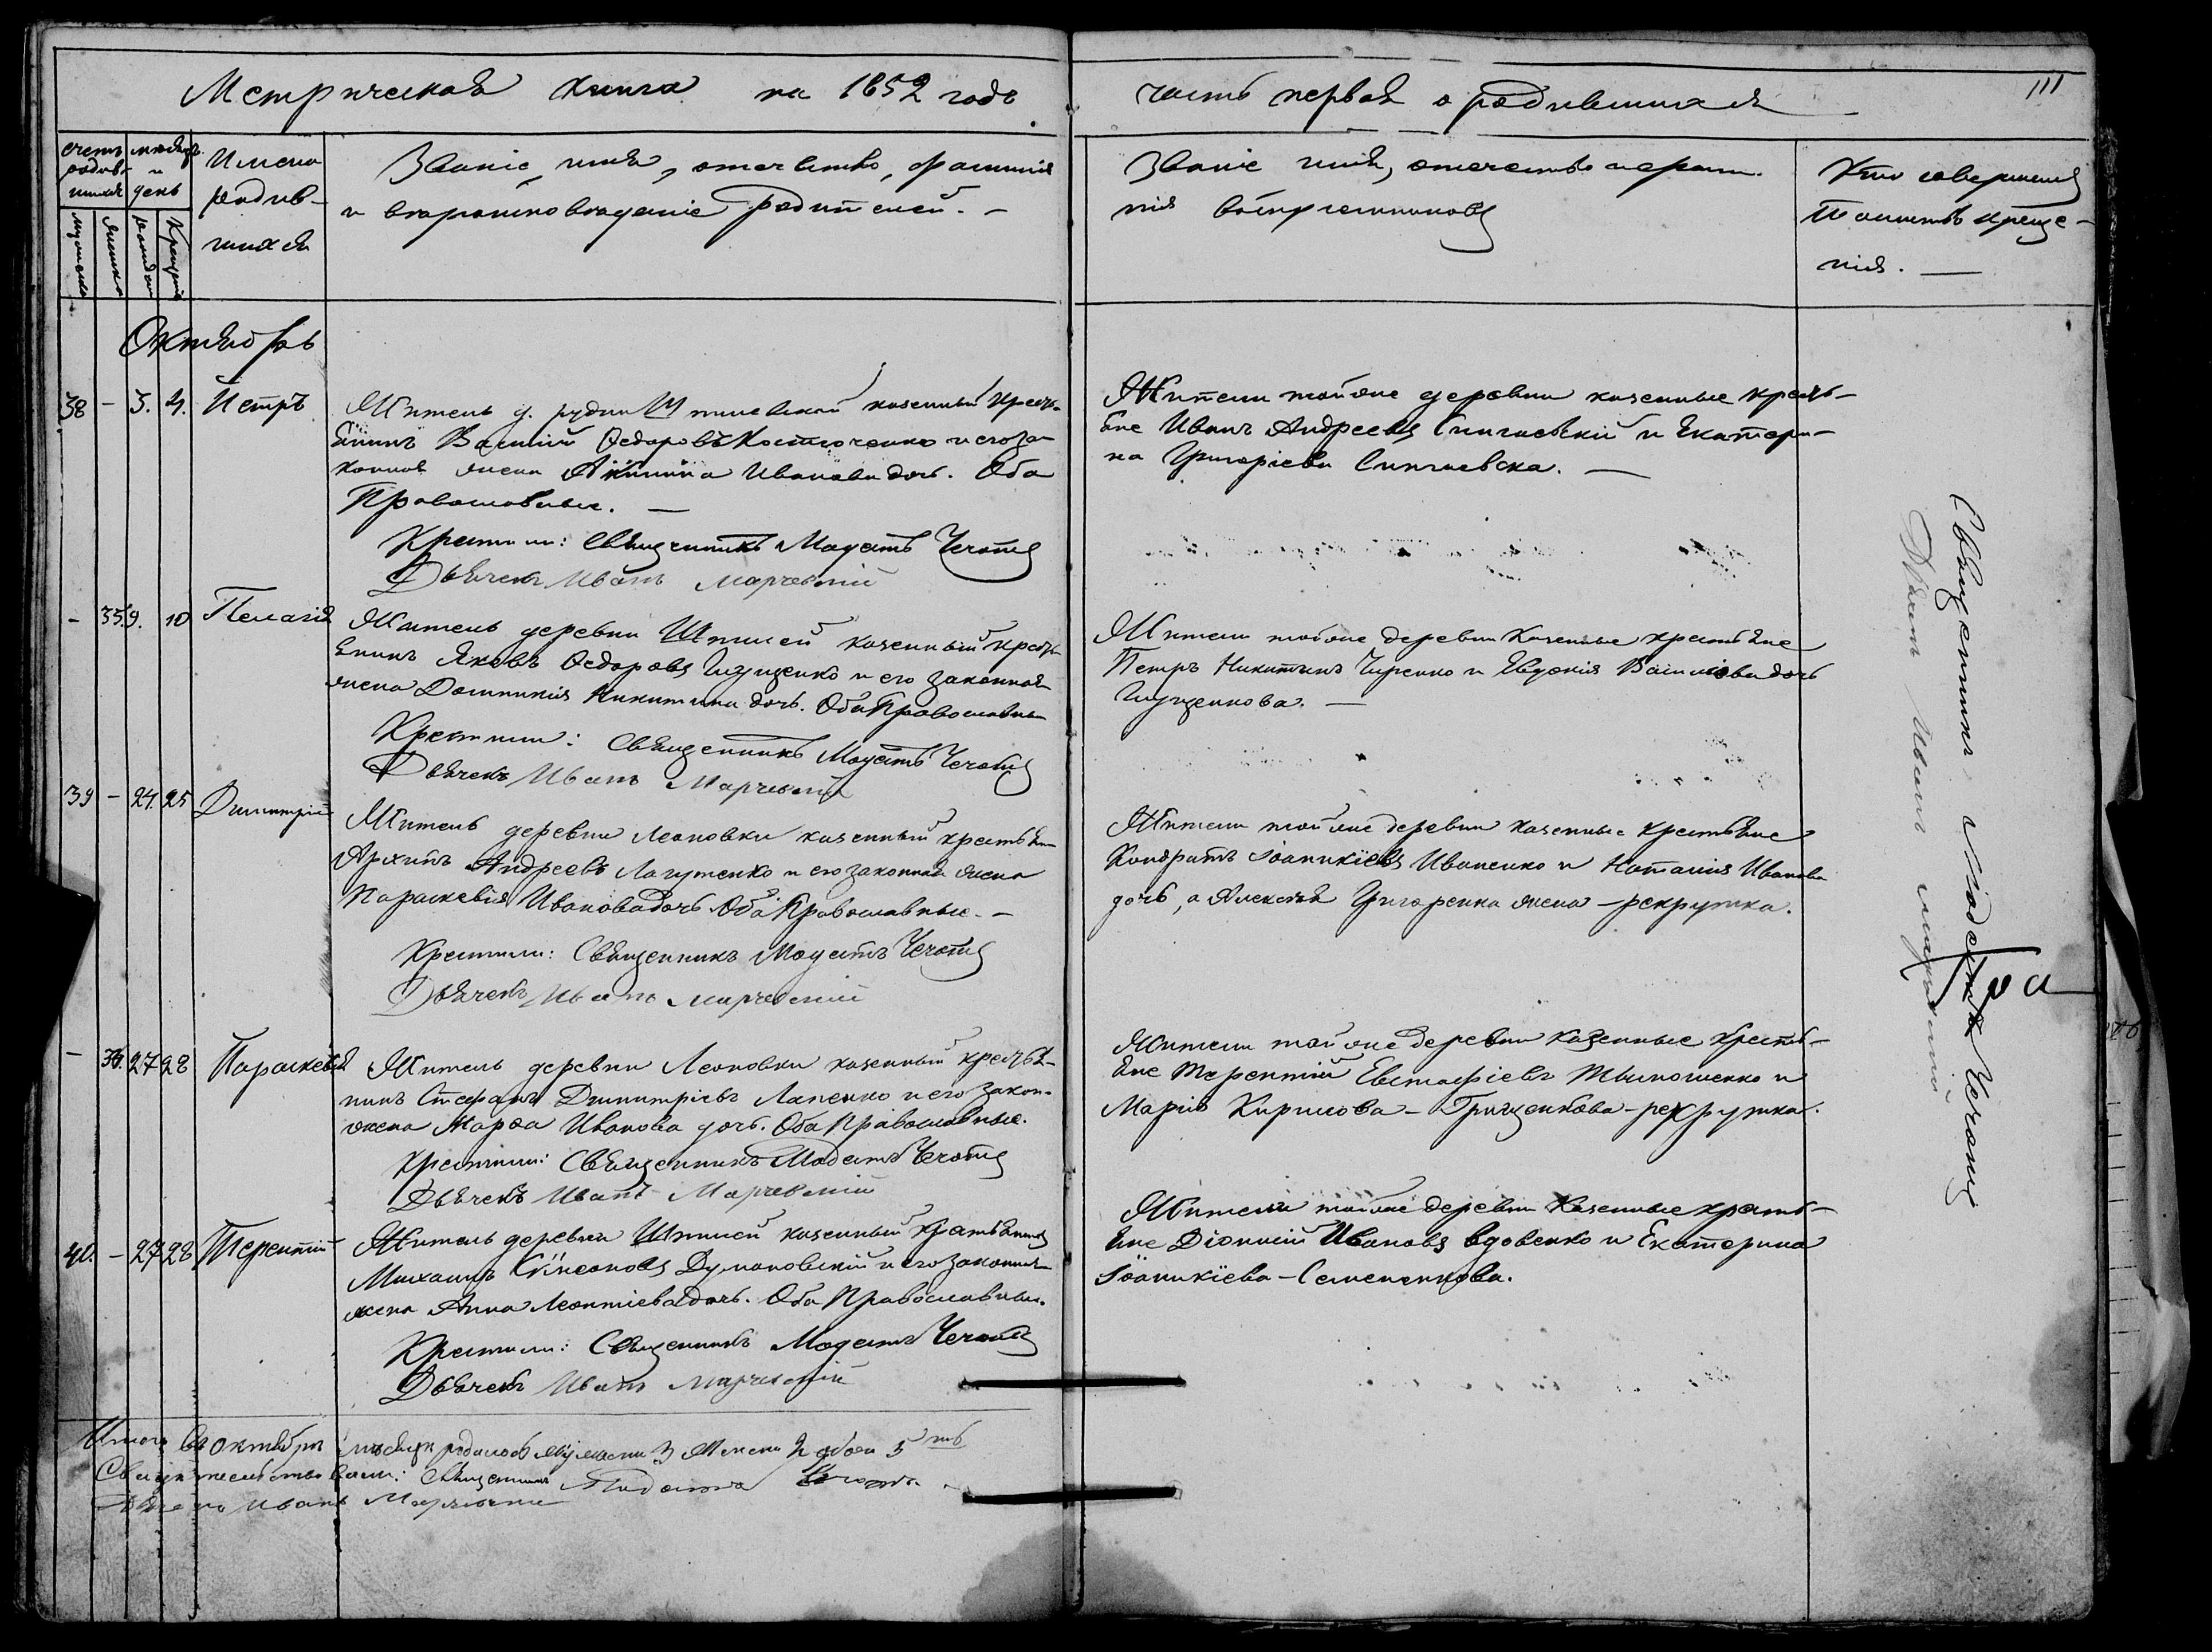 Метрическая книга на 1852 годъ
часть первая о родившихся
111
счетъ родив-шихся
мѣсяцъ и день
мужеска
женска
рожденія
крещенія
Имена
родив-
шихся
Званіе, имя, отечество, фамилія
и вѣроисповѣданіе родителей. –
Званіе имя, отечество и фами-
лія воспріемниковъ
Кто совершалъ
таинство креще-
нія. —
Октябрь
38 – 3. 4. Петръ
Житель д. рудни Шпилевской казенный кресть-
янинъ Василій Ѳедоровъ Костюченко и его за-
конная жена Акилина Иванова дочь. Оба
Православные. —
Крестили: Священникъ Модестъ Чечотъ
Дьячекъ Иванъ Марчевскій
Жители той же деревни казенные кресть-
яне Иванъ Андреевъ и Екатери-
на Григоріева
– 35. 9. 10 Пелагія
Житель деревни Шпилей казенный кресть-
янинъ Яковъ Ѳедоровъ Гищенко и его законная
жена Домникія Никитина дочь. Оба Православны
Крестили: Священникъ Модестъ Чечотъ
Дьячекъ Иванъ Марчевскій
Жители той же деревни Казенные крестьяне
Петръ Никитинъ Чиренко и Евдокія Васильева дочь
Гищенкова. —
39 – 24. 25 Димитрій
Житель деревни Леоновки казенный крестьян
Архипъ Андреевъ Лагутенко и его законная жена
Параскевія Иванова дочь Оба Православные. –
Крестили: Священникъ Модестъ Чечотъ
Дьячекъ Иванъ Марчевскій
Жители той же деревни казенные крестьяне
Кондратъ Іоаникіевъ Иваненко и Наталія Иванова
дочь, а Алексѣя Григоренка жена – рекрутка.
– 36. 27 28 Параскевія
Житель деревни Леоновки казенный крестья-
нинъ Стефанъ Димитріевъ Лапенко и его закон-
жена Марѳа Иванова дочь. Оба Православные.
Крестили: Священникъ Модестъ Чечотъ
Дьячекъ Иванъ Марчевскій
Жители той же деревни казенные кресть-
яне Терентій Евстафіевъ Тимошенко и
Марія Кирилова – Грищенкова – рекрутка.
40. – 27 28 Терентій
Житель деревни Шпилей казенный крестьянинъ
Михаилъ Симеоновъ Думановскій и его законная
жена Анна Леонтіева дочь. Оба Православные.
Крестили: Священникъ Модестъ Чечотъ
Дьячекъ Иванъ Марчевскій
Жители той же деревни Казенные кресть-
яне Діонисій Ивановъ Вдовенко и Екатерина
Іоаникіева – Семененкова.
Итого въ октябрѣ мѣсяцѣ родилось мужеска 3 женска 2 обоего 5ть
Свидѣтельствовали: Священникъ Модестъ Чечотъ.
Дьячекъ Иванъ Марчевскій
Священникъ Модестъ Чечотъ
Дьячекъ Иванъ Марчевскій